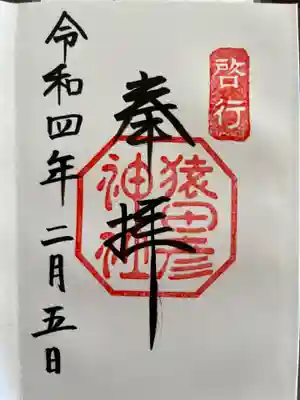 啓行
奉拝
猿田彦
神社
令和四年二月五日